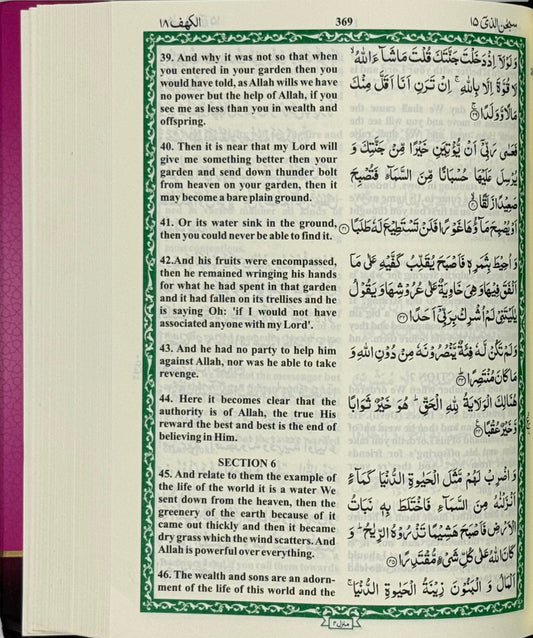 الكهف ١٨
369
سبحن الذى ١٥
39. And why it was not so that when
you entered in your garden then you
would have told, as Allah wills we have
no power but the help of Allah, if you
see me as less than you in wealth and
offspring.
وَلَوْلَآ اِذْ دَخَلْتَ جَنَّتَكَ قُلْتَ مَا شَآءَ اللّٰهُ ۙ
لَا قُوَّةَ اِلَّا بِاللّٰهِ ۚ اِنْ تَرَنِ اَنَا اَقَلَّ مِنْكَ
مَالًا وَّوَلَدًا ۟
40. Then it is near that my Lord will
give me something better then your
garden and send down thunder bolt
from heaven on your garden, then it
may become a bare plain ground.
فَعَسٰى رَبِّيْٓ اَنْ يُّؤْتِيَنِ خَيْرًا مِّنْ جَنَّتِكَ وَ
يُرْسِلَ عَلَيْهَا حُسْبَانًا مِّنَ السَّمَآءِ فَتُصْبِحَ
صَعِيْدًا زَلَقًا ۟
41. Or its water sink in the ground,
then you could never be able to find it.
اَوْ يُصْبِحَ مَآؤُهَا غَوْرًا فَلَنْ تَسْتَطِيْعَ لَهٗ طَلَبًا ۟
42.And his fruits were encompassed,
then he remained wringing his hands
for what he had spent in that garden
and it had fallen on its trellises and he
is saying Oh: 'if I would not have
associated anyone with my Lord'.
وَاُحِيْطَ بِثَمَرِهٖ فَاَصْبَحَ يُقَلِّبُ كَفَّيْهِ عَلٰى مَآ
اَنْفَقَ فِيْهَا وَهِيَ خَاوِيَةٌ عَلٰى عُرُوْشِهَا وَيَقُوْلُ
يٰلَيْتَنِيْ لَمْ اُشْرِكْ بِرَبِّيْٓ اَحَدًا ۟
43. And he had no party to help him
against Allah, nor was he able to take
revenge.
وَلَمْ تَكُنْ لَّهٗ فِئَةٌ يَّنْصُرُوْنَهٗ مِنْ دُوْنِ اللّٰهِ وَ
مَا كَانَ مُنْتَصِرًا ۟
44. Here it becomes clear that the
authority is of Allah, the true His
reward the best and best is the end of
believing in Him.
هُنَالِكَ الْوَلَايَةُ لِلّٰهِ الْحَقِّ ؕ هُوَ خَيْرٌ ثَوَابًا
وَّخَيْرٌ عُقْبًا ۟
SECTION 6
45. And relate to them the example of
the life of the world it is a water We
sent down from the heaven, then the
greenery of the earth because of it
came out thickly and then it became
dry grass which the wind scatters. And
Allah is powerful over everything.
وَاضْرِبْ لَهُمْ مَّثَلَ الْحَيٰوةِ الدُّنْيَا كَمَآءٍ
اَنْزَلْنٰهُ مِنَ السَّمَآءِ فَاخْتَلَطَ بِهٖ نَبَاتُ
الْاَرْضِ فَاَصْبَحَ هَشِيْمًا تَذْرُوْهُ الرِّيٰحُ ؕ وَ
كَانَ اللّٰهُ عَلٰى كُلِّ شَيْءٍ مُّقْتَدِرًا ۟
46. The wealth and sons are an adorn-
ment of the life of this world and the
اَلْمَالُ وَ الْبَنُوْنَ زِيْنَةُ الْحَيٰوةِ الدُّنْيَا ۚ
منزل ٤